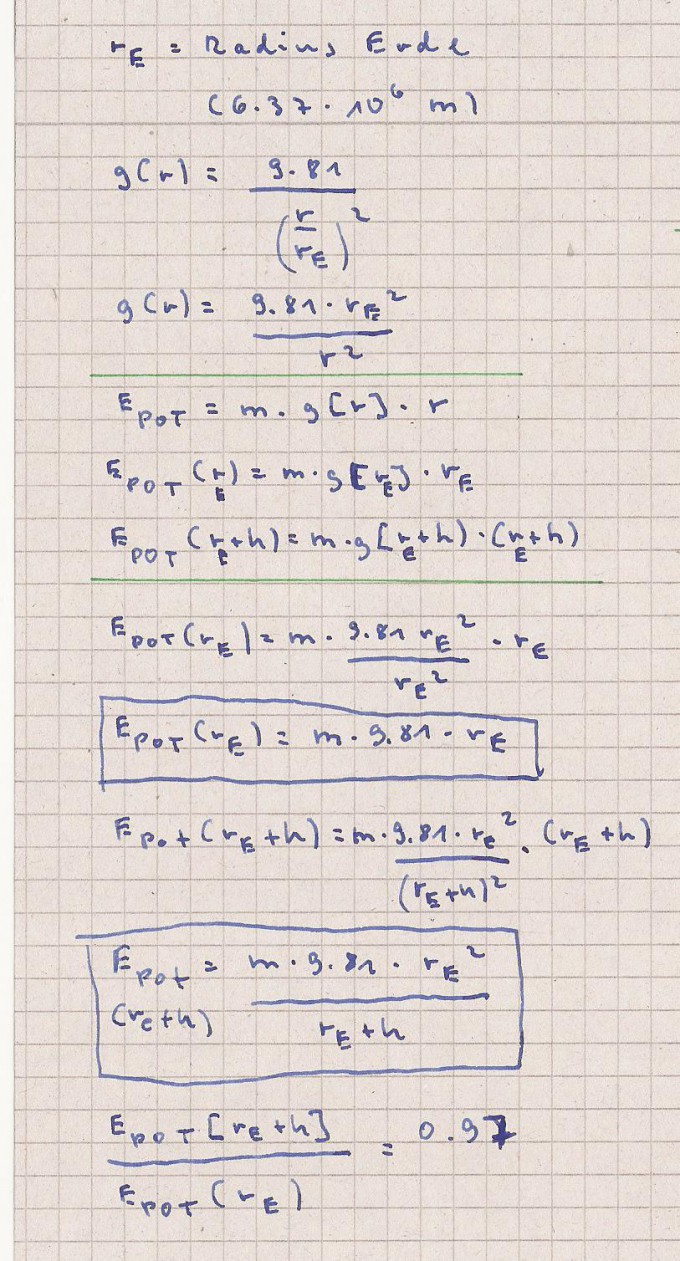 r_E = Radius Erde
(6.37 · 10^6 m)
g(r) = 9.81 / (r / r_E)^2
g(r) = 9.81 · r_E^2 / r^2
E_POT = m · g[r] · r
E_POT (r_E) = m · g[r_E] · r_E
E_POT (r_E+h) = m · g[r_E+h) · (r_E+h)
E_POT (r_E) = m · 9.81 r_E^2 / r_E^2 · r_E
E_POT (r_E) = m · 9.81 · r_E
E_Pot (r_E+h) = m · 9.81 · r_E^2 / (r_E+h)^2 · (r_E+h)
E_Pot (r_e+h) = m · 9.81 · r_E^2 / r_E+h
E_POT [r_E+h] / E_POT (r_E) = 0.97